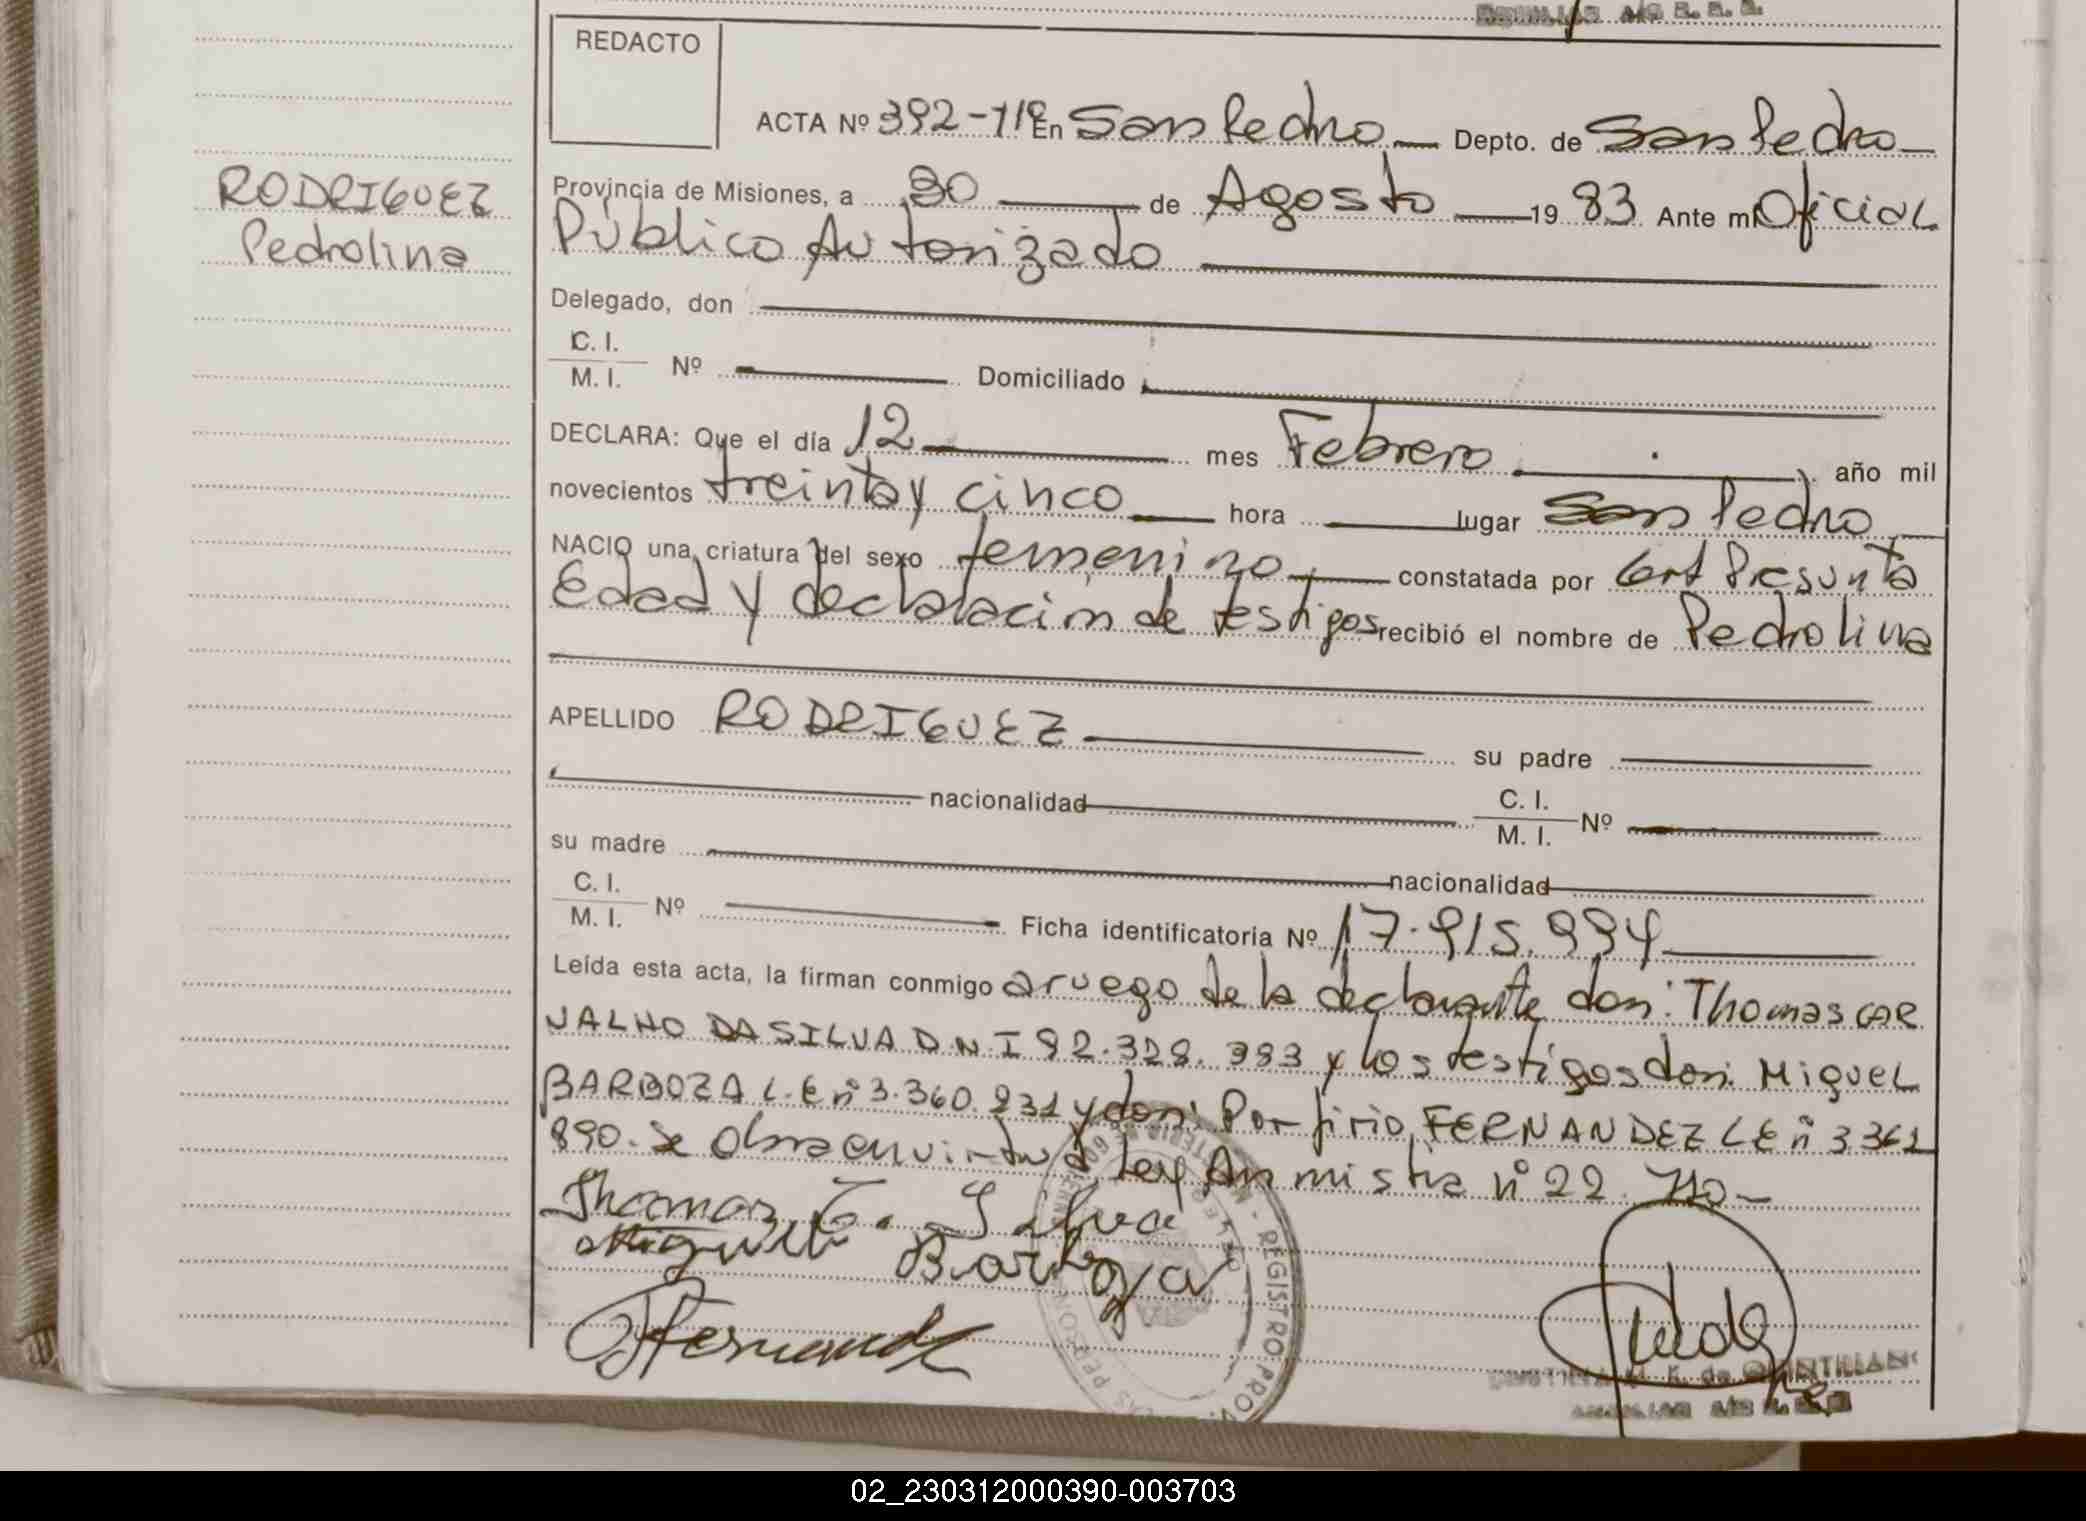 REDACTO
ACTA Nº 392-119 En San Pedro Depto. de San Pedro
RODRIGUEZ
Pedrolina
Provincia de Misiones, a 30 de Agosto 19 83 Ante mi Oficial
Público Autorizado
Delegado, don
C. I.
M. I. Nº Domiciliado
DECLARA: Que el día 12 mes Febrero año mil
novecientos treinta y cinco hora lugar San Pedro
NACIO una criatura del sexo femenino constatada por Cert Presunta
Edad y declaración de testigos recibió el nombre de Pedrolina
APELLIDO RODRIGUEZ su padre
nacionalidad C. I.
M. I. Nº
su madre nacionalidad
C. I.
M. I. Nº Ficha identificatoria Nº 17.915.994
Leída esta acta, la firman conmigo a ruego de la declarante don: Thomas CAR
VALHO DA SILVA D.N.I 92.328.393 y los testigos don: Miguel
BARBOZA L.E nº 3.360.231 y don: Porfirio FERNANDEZ LE nº 3.361
890. se obra en virtud Ley Anmistia nº 22.
Thomas C. Silva
Miguel Barboza
Fernand
REGISTRO PROV.
02_230312000390-003703